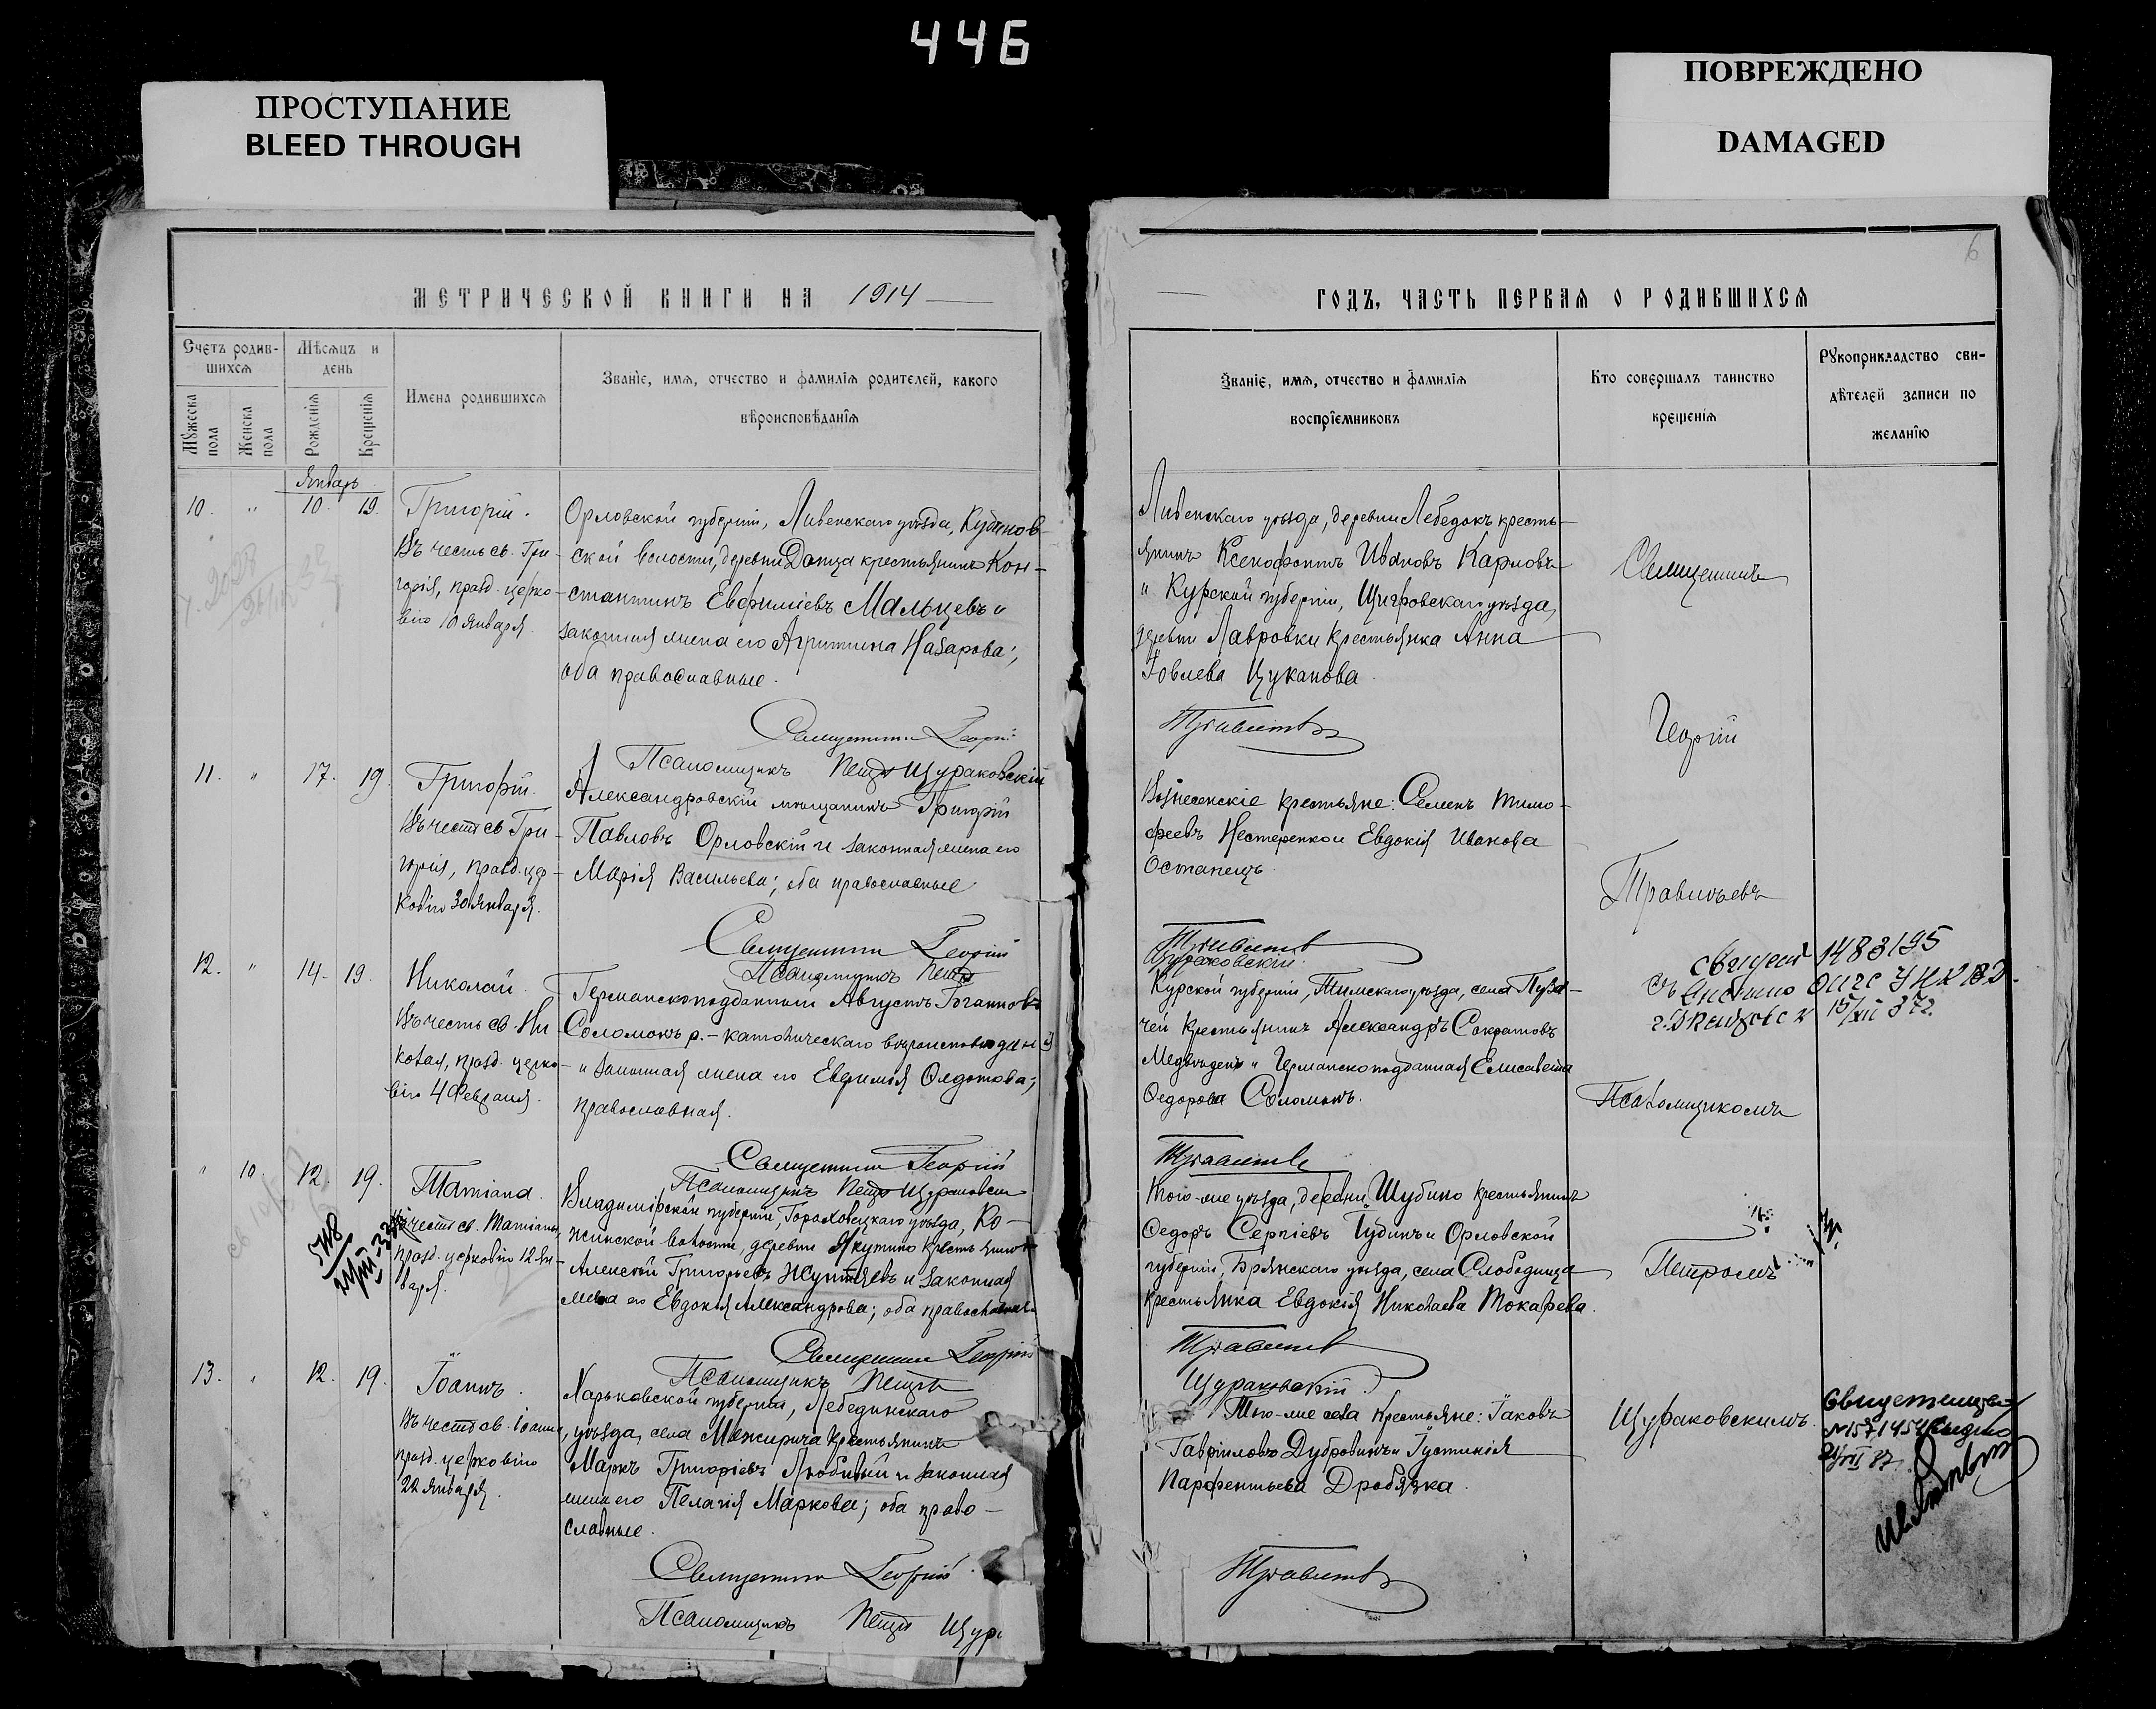 446
ПРОСТУПАНИЕ
BLEED THROUGH
ПОВРЕЖДЕНО
DAMAGED
6
МЕТРИЧЕСКОЙ КНИГИ НА 1914
Счетъ родив-
шихся
Мѣсяцъ и
день
Имена родившихся
Званіе, имя, отчество и фамилія родителей, какого
вѣроисповѣданія
Мужеска пола
Женска пола
Рожденія
Крещенія
Январь
10. " 10. 19.
Григорій.
Въ честь св. Гри-
горія, празд. церко-
вію 10 Января.
Орловской губерніи, Ливенскаго уѣзда, Кудинов-
ской волости, деревни Данца крестьянинъ Кон-
стантинъ Евфиміевъ Мальцевъ и
законная жена его Агрипина Назарова;
оба православные.
Священникъ Георгій
Псаломщикъ Петръ Щураковскій
11. " 17. 19.
Григорій.
Въ честь св. Гри-
горія, празд. цер-
ковію 30 Января.
Александровскій мѣщанинъ Григорій
Павловъ Орловскій и законная жена его
Марія Васильева; оба православные
Священникъ Георгій
Псаломщикъ Петръ
12. " 14. 19.
Николай.
Въ честь св. Ни-
колая, празд. церко-
вію 4 Февраля.
Германскоподданный Августъ Іоганновъ
Соломонъ р.-католическаго вѣроисповѣданія
и законная жена его Евфимія Федотова;
православная.
Священникъ Георгій
Псаломщикъ Петръ Щураковскій
" 10. 12. 19.
Татіана.
Въ честь св. Татіаны,
празд. церковію 12 Ян-
варя.
Владимірской губерніи, Гороховецкаго уѣзда, Ко-
жинской волости, деревни Якутино крестьянинъ
Алексѣй Григорьевъ и законная
жена его Евдокія Александрова; оба православные
Священникъ Георгій
Псаломщикъ Петръ
13. " 12. 19.
Іоаннъ.
Въ честь св. Іоанна,
празд. церковію
22 Января.
Харьковской губерніи, Лебединскаго
уѣзда, села Межирича крестьянинъ
Маркъ Григоріевъ Любивый и законная
жена его Пелагія Маркова; оба право-
славные.
Священникъ Георгій
Псаломщикъ Петръ Щур
ГОДЪ, ЧАСТЬ ПЕРВАЯ О РОДИВШИХСЯ
Званіе, имя, отчество и фамилія
воспріемниковъ
Кто совершалъ таинство
крещенія
Рукоприкладство сви-
дѣтелей записи по
желанію
Ливенскаго уѣзда, деревни Лебедокъ кресть-
янинъ Ксенофонтъ Ивановъ Карловъ
и Курской губерніи, Щигровскаго уѣзда,
деревни Лавровки крестьянка Анна
Іовлева Цуканова.
Травинъевъ
Вознесенскіе крестьяне: Семенъ Тимо-
феевъ Нестеренко и Евдокія Иванова
Остапецъ.
Щураковскій.
Курской губерніи, Тимскаго уѣзда, села Пуза-
чей крестьянинъ Александръ Сократовъ
Медвѣдевъ и Германскоподданная Елисавета
Федорова Соломонъ.
Того-же уѣзда, деревни Шубино крестьянинъ
Федоръ Сергіевъ Гудинъ и Орловской
губерніи, Брянскаго уѣзда, села Слободища
крестьянка Евдокія Николаева Токарева.
Щураковскій
Того-же села крестьяне: Іаковъ
Гавріиловъ Дубровинъ и Іустинія
Парфентьева Дробязка.
Священникъ
Георгій
Псаломщикомъ
Петромъ
Щураковскимъ.
1483195